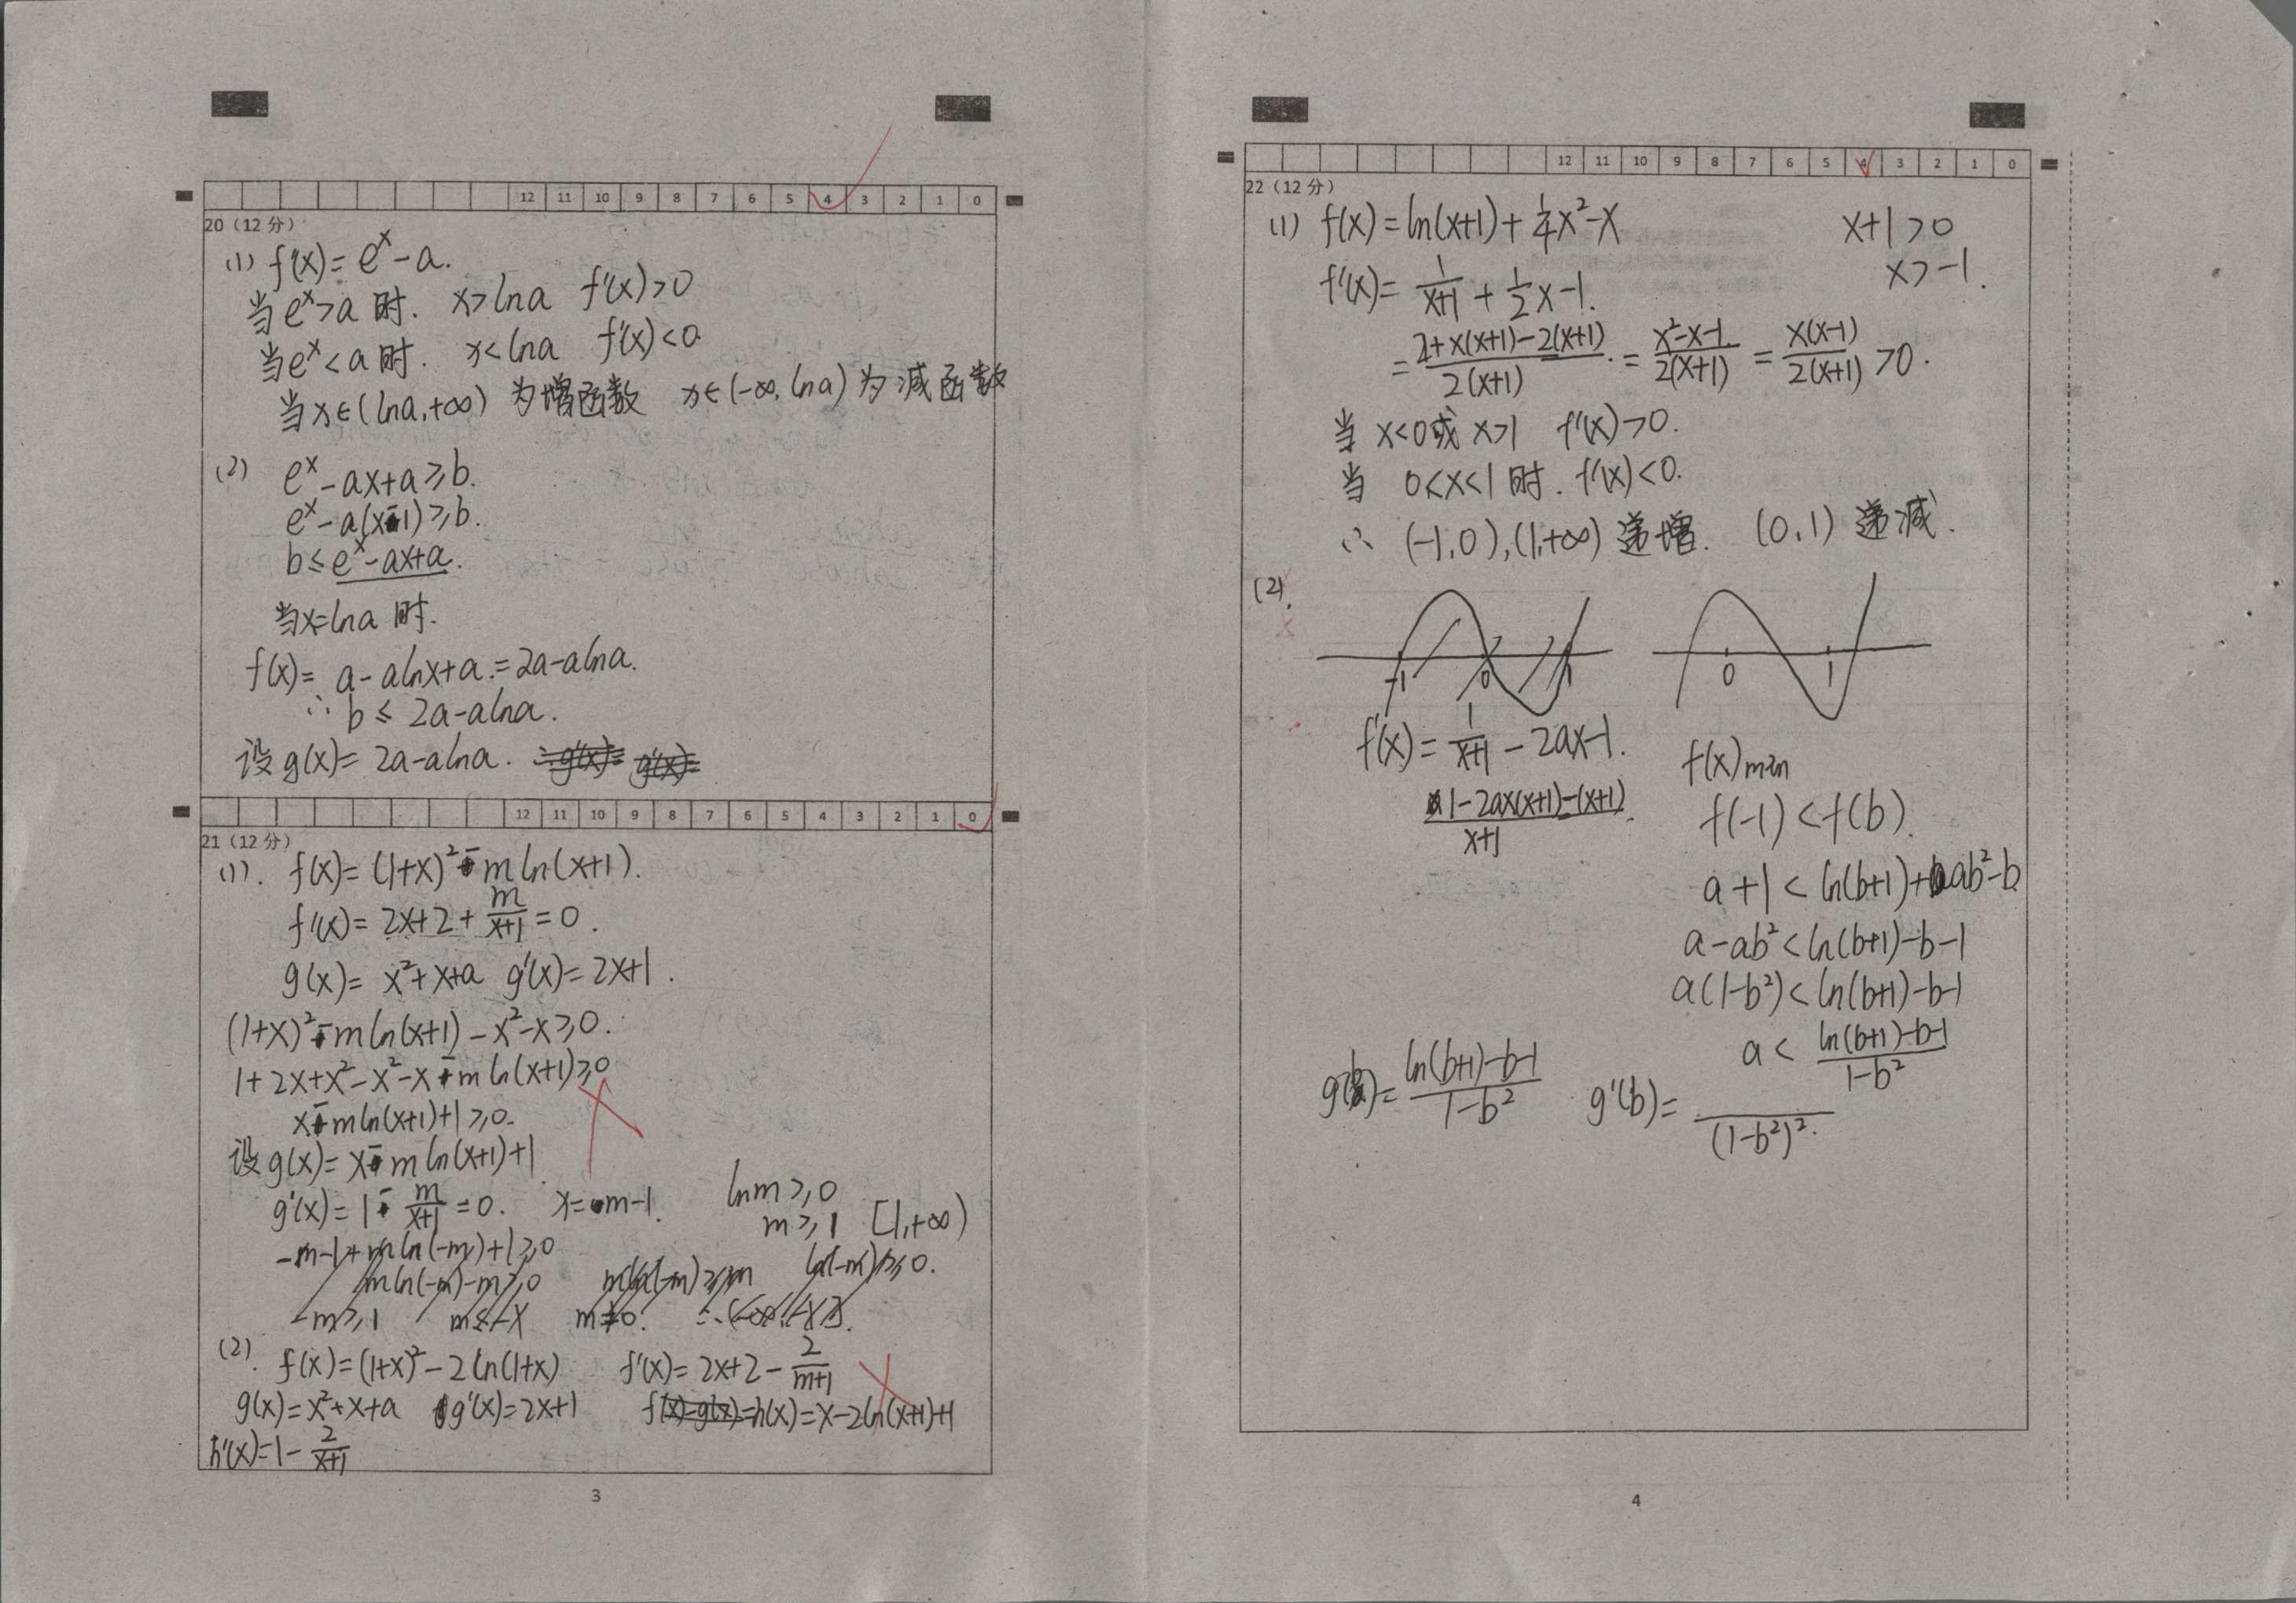 12 11 10 9 8 7 6 5 4 3 2 1 0
20（12 分）
(1) f'(x)= e^x - a.
当 e^x>a 时. x>lna f'(x)>0
当 e^x<a 时. x<lna f'(x)<0
当 x∈(lna,+∞) 为增函数 x∈(-∞,lna) 为减函数
(2) e^x-ax+a≥b.
e^x-a(x-1)≥b.
b≤e^x-ax+a.
当x=lna 时.
f(x)= a-alnx+a.=2a-alna.
∴ b≤ 2a-alna.
设 g(x)= 2a-alna.
12 11 10 9 8 7 6 5 4 3 2 1 0
21（12 分）
(1). f(x)= (1+x)²-mln(x+1).
f'(x)= 2x+2+m/(x+1)=0.
g(x)= x²+x+a g'(x)=2x+1.
(1+x)²-mln(x+1)-x²-x≥0.
1+2x+x²-x²-x-mln(x+1)≥0
x-mln(x+1)+1≥0.
设 g(x)= x-mln(x+1)+1
g'(x)=1-m/(x+1)=0. x=m-1. lnm≥0
m≥1 [1,+∞)
-m-1+mln(-m)+1≥0
mln(-m)-m≥0 mln(-m)≥m ln(-m)≥0.
-m≥1
(2). f(x)=(1+x)²-2ln(1+x) f'(x)=2x+2-2/(m+1)
g(x)=x²+x+a g'(x)=2x+1 f(x)-g(x)=h(x)=x-2ln(x+1)+1
h'(x)=1-2/(x+1)
3
12 11 10 9 8 7 6 5 4 3 2 1 0
22（12 分）
(1) f(x)=ln(x+1)+1/4x²-x x+1>0
x>-1.
f'(x)= 1/(x+1)+1/2x-1.
= (2+x(x+1)-2(x+1))/(2(x+1)). = (x²-x-1)/(2(x+1)) = x(x-1)/(2(x+1)) >0.
当 x<0或 x>1 f'(x)>0.
当 0<x<1 时. f'(x)<0.
∴ (-1,0),(1,+∞) 递增. (0,1) 递减.
(2).
-1 0 1 0 1
f'(x)= 1/(x+1)-2ax-1.
f(x)min
(1-2ax(x+1)-(x+1))/(x+1).
f(-1)<f(b).
a+1<ln(b+1)+ab²-b
a-ab²<ln(b+1)-b-1
a(1-b²)<ln(b+1)-b-1
a< (ln(b+1)-b-1)/(1-b²)
g(b)= (ln(b+1)-b-1)/(1-b²) g'(b)= /(1-b²)².
4